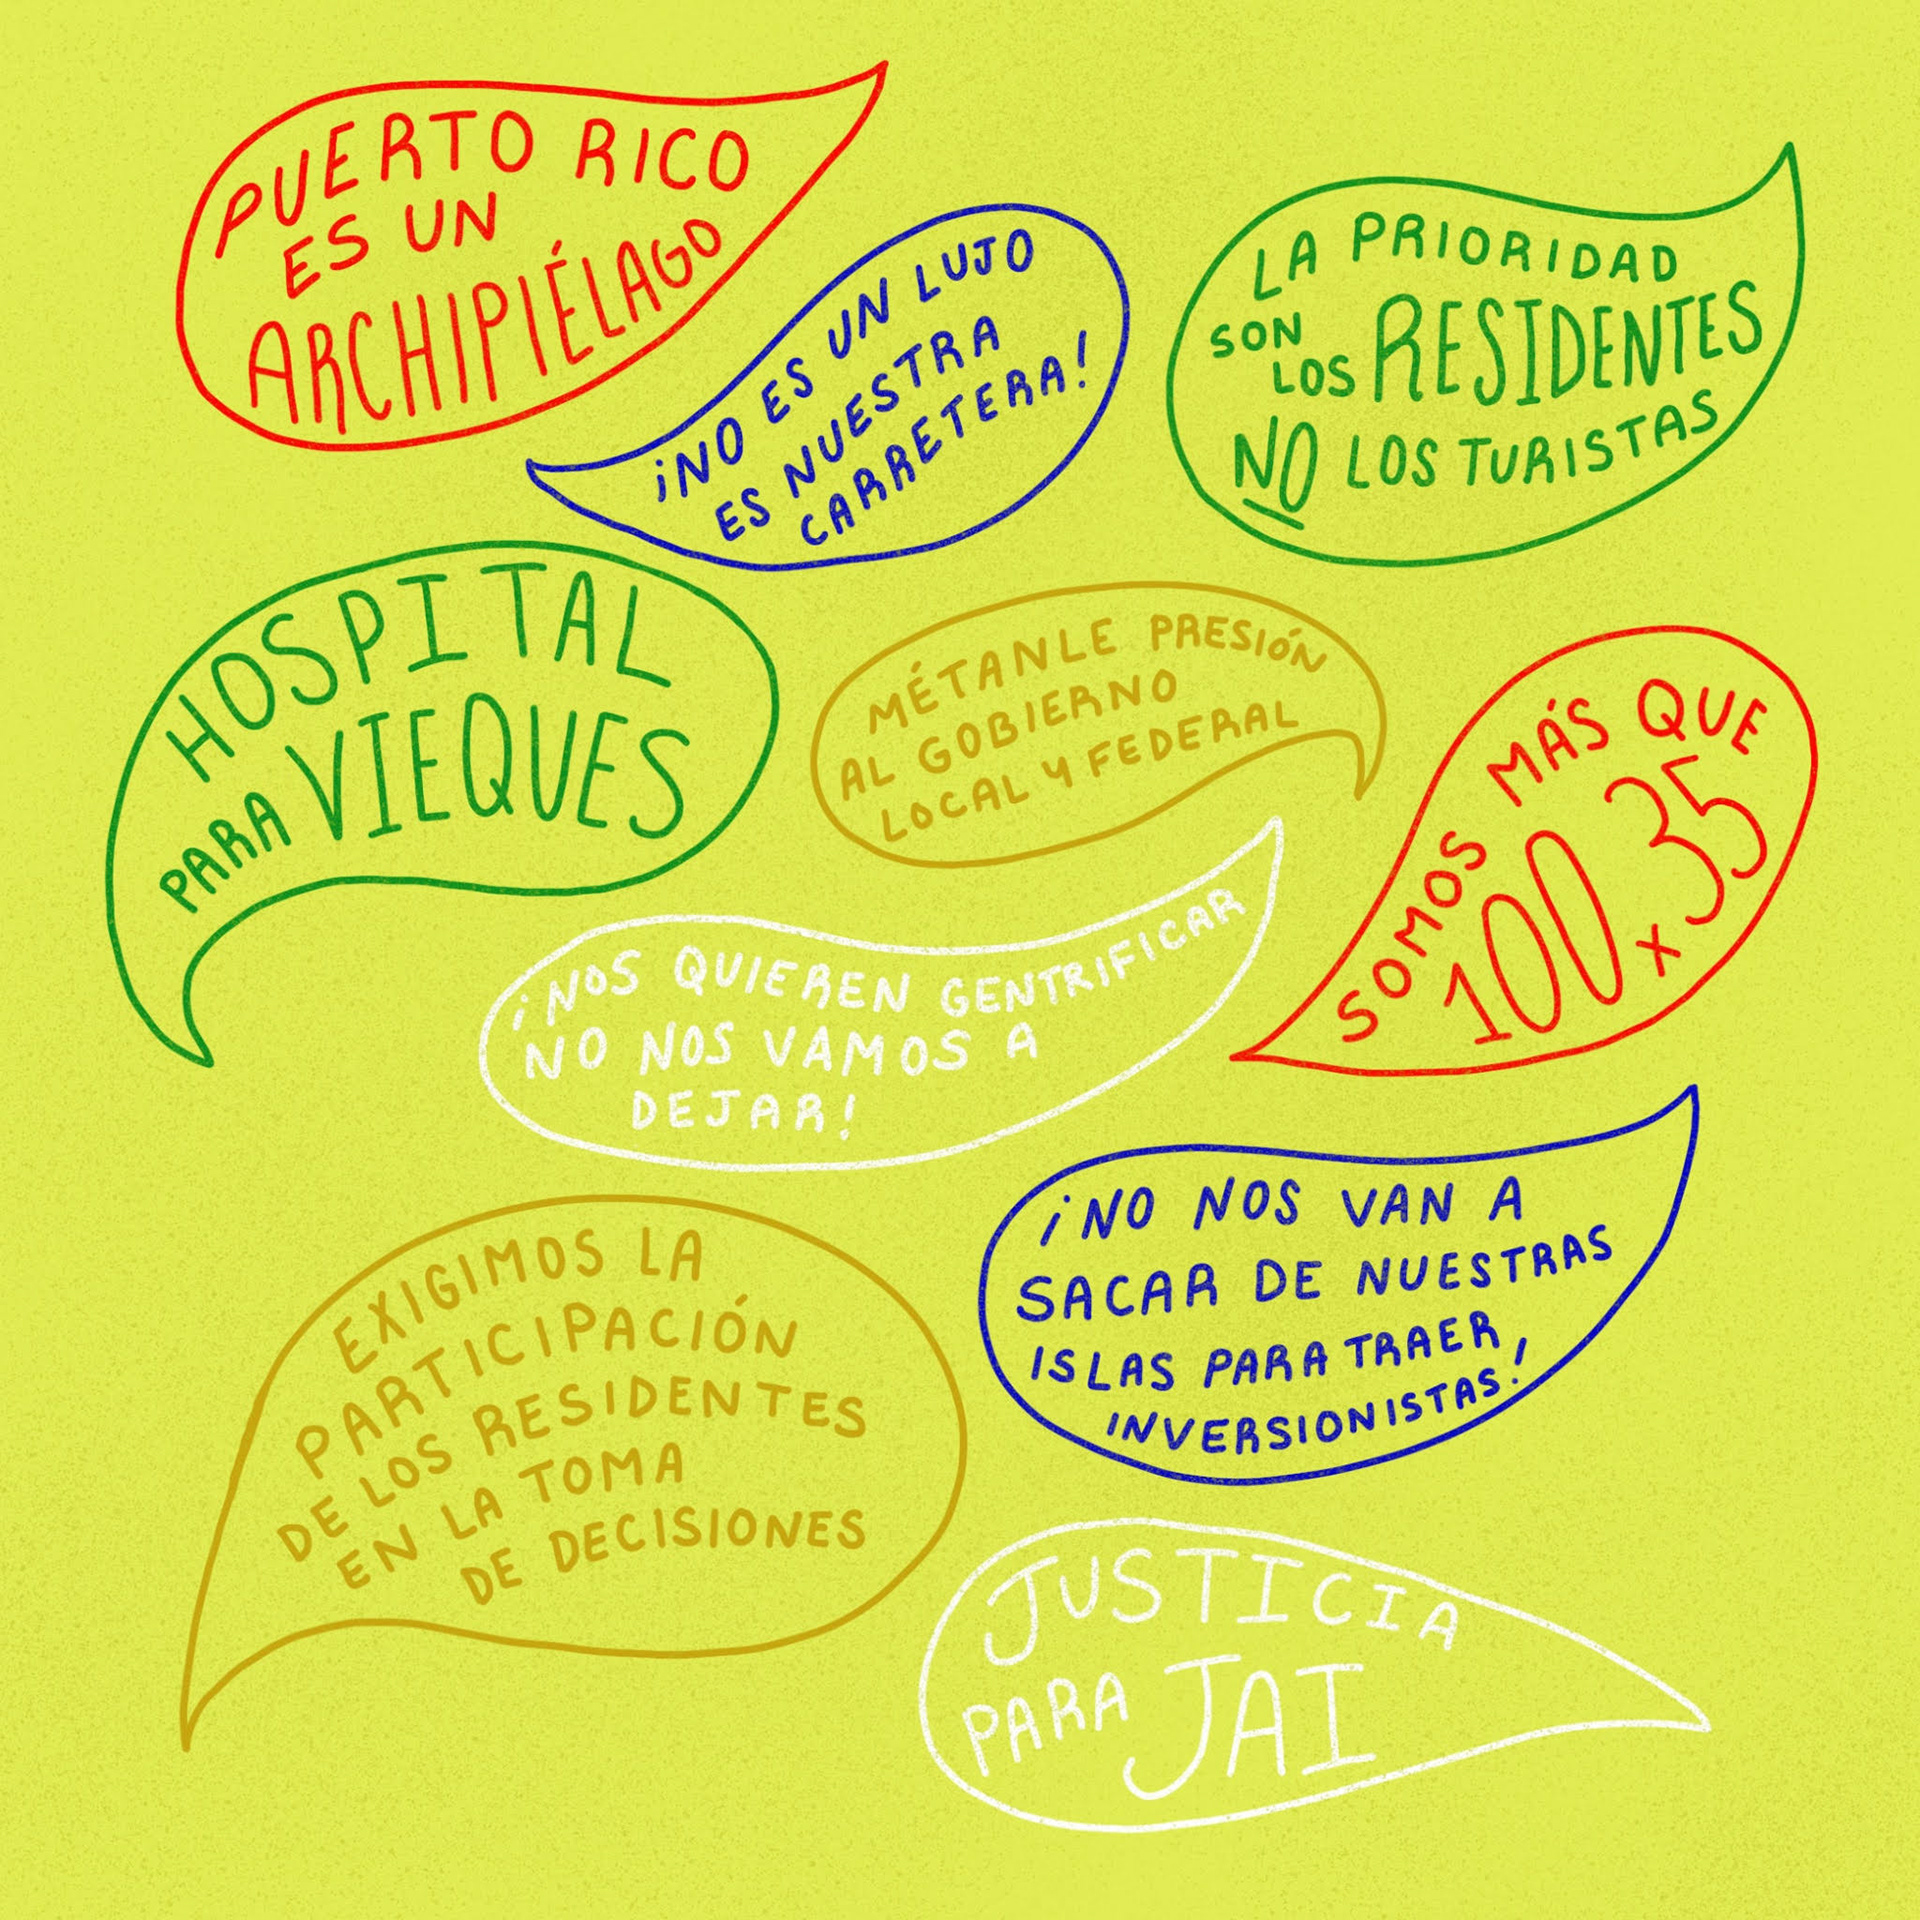 PUERTO RICO
ES UN
ARCHIPIÉLAGO
¡NO ES UN LUJO
ES NUESTRA
CARRETERA!
LA PRIORIDAD
SON
LOS RESIDENTES
NO LOS TURISTAS
HOSPITAL
PARA VIEQUES
MÉTANLE PRESIÓN
AL GOBIERNO
LOCAL Y FEDERAL
SOMOS MÁS QUE
100 x 35
¡NOS QUIEREN GENTRIFICAR
NO NOS VAMOS A
DEJAR!
¡NO NOS VAN A
SACAR DE NUESTRAS
ISLAS PARA TRAER
INVERSIONISTAS!
EXIGIMOS LA
PARTICIPACIÓN
DE LOS RESIDENTES
EN LA TOMA
DE DECISIONES
JUSTICIA
PARA JAI